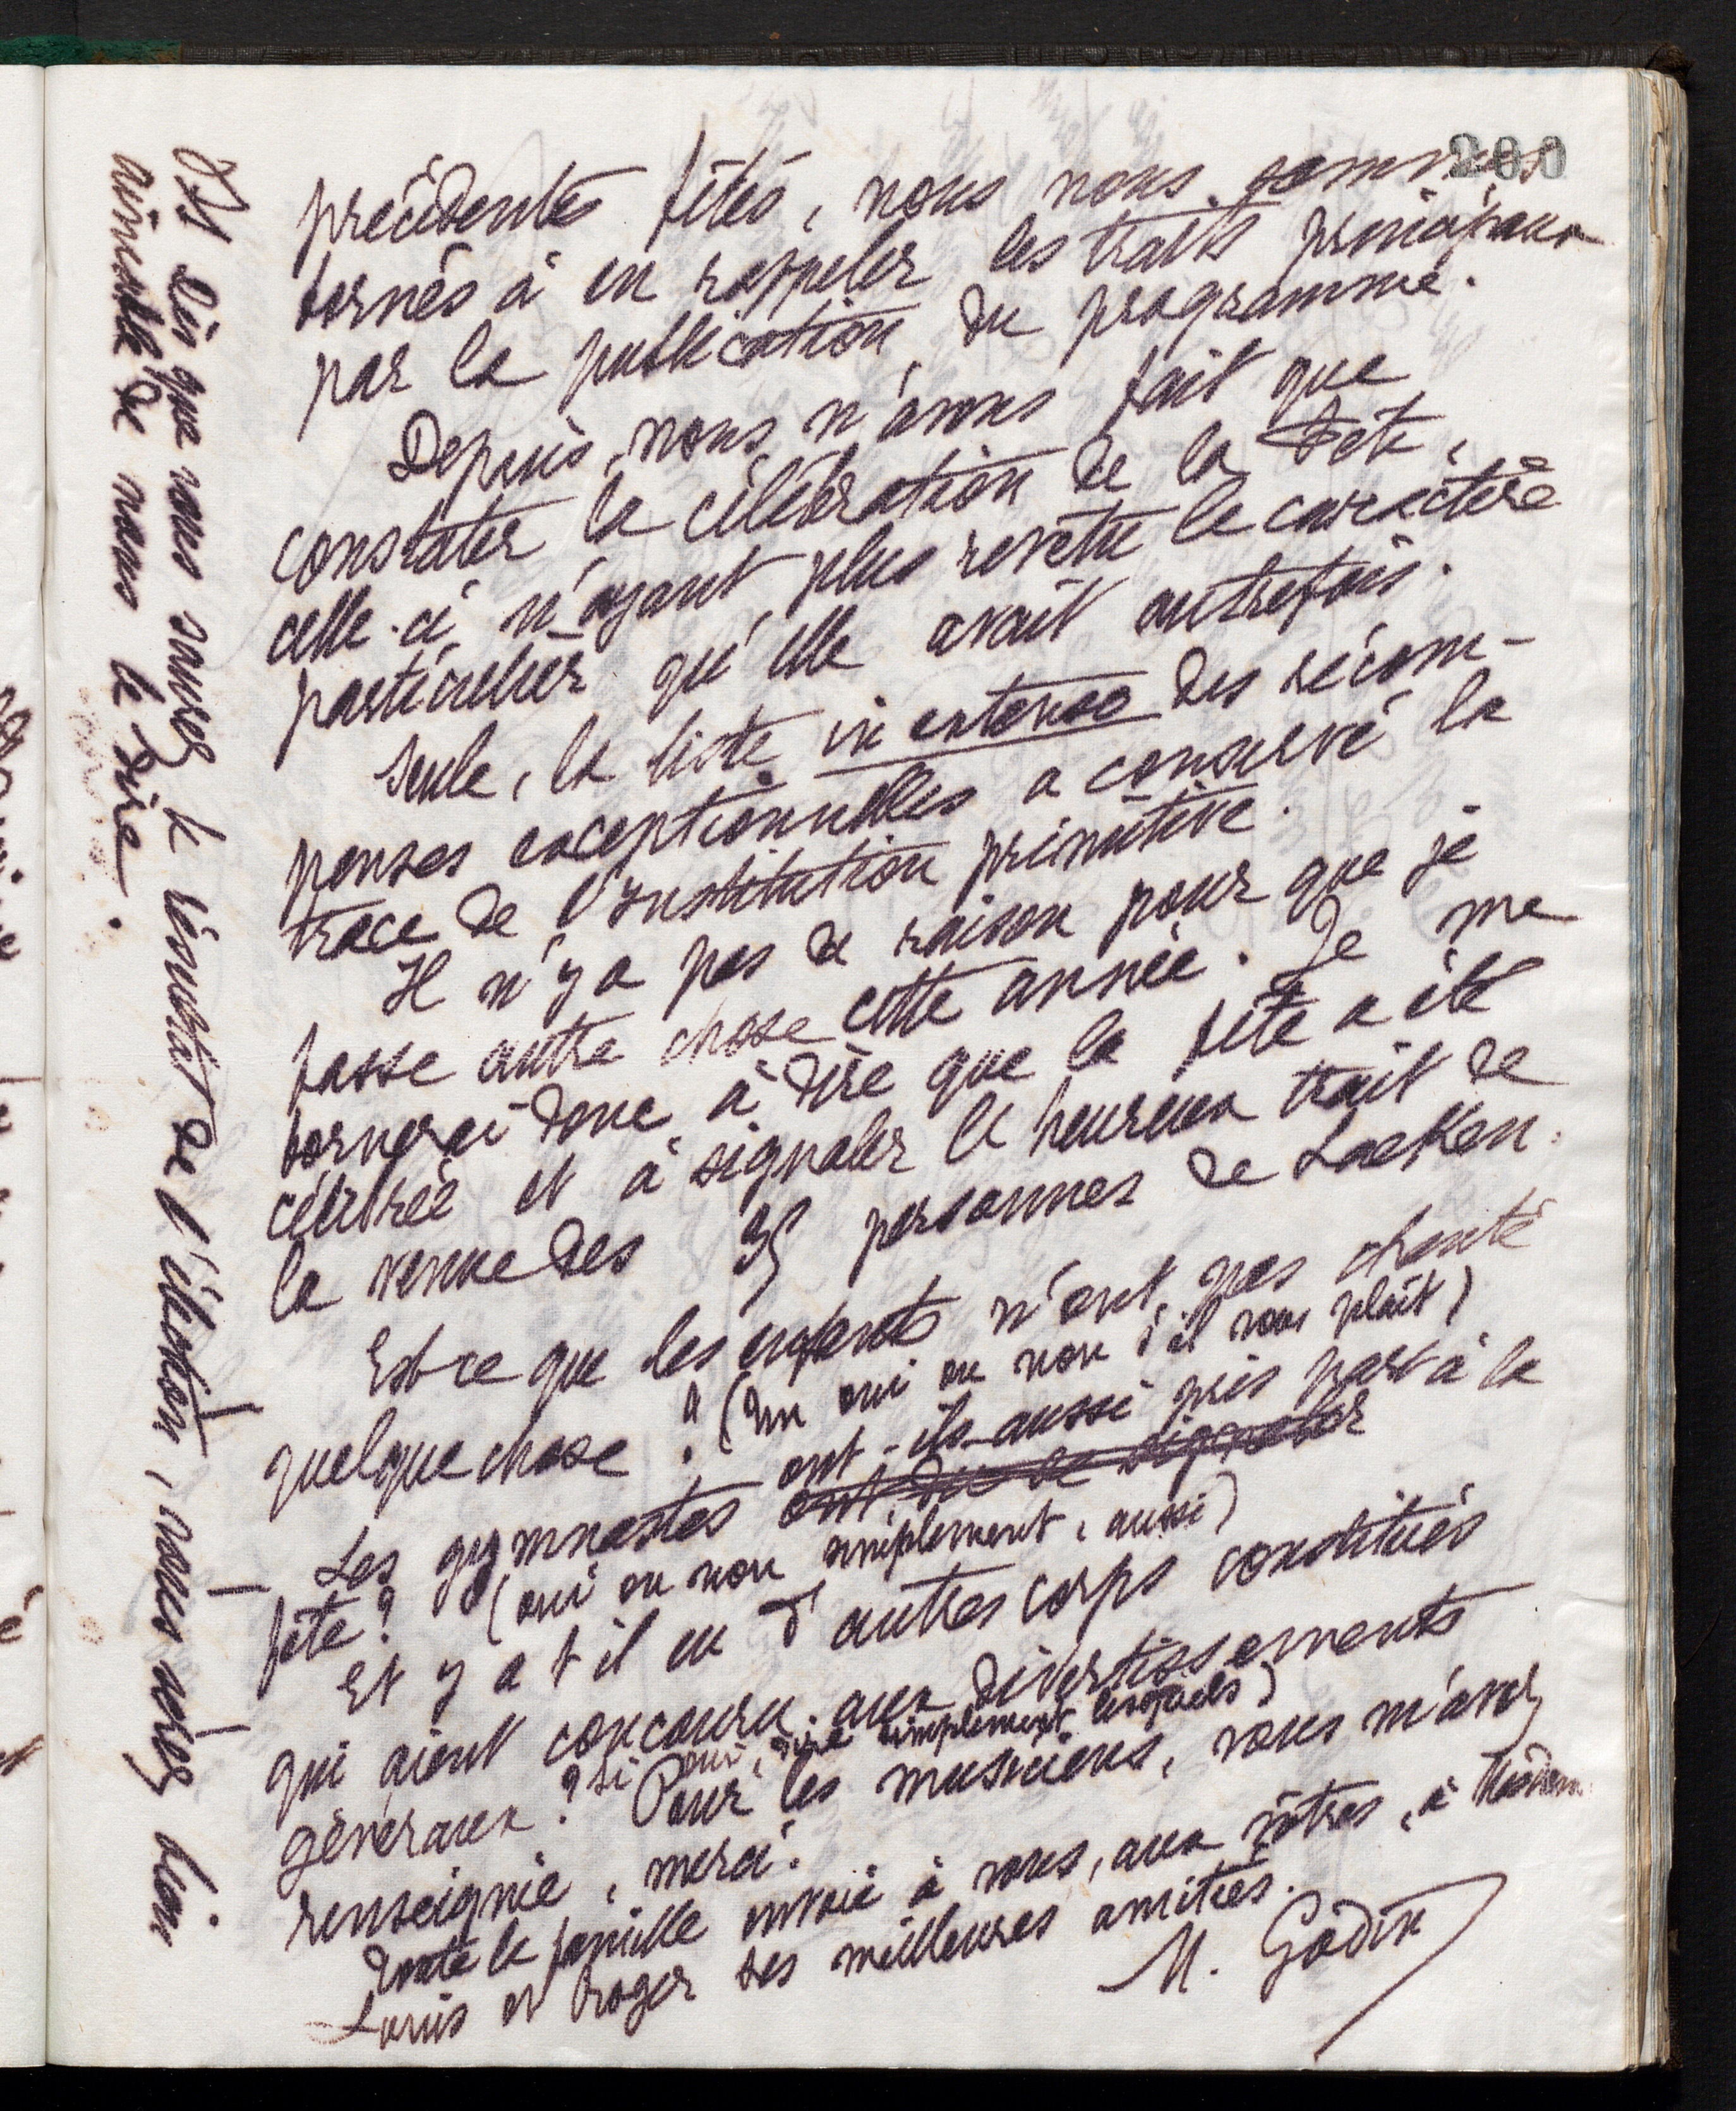 200
précédentes fêtes, nous nous sommes
bornés à en rappeler les traits principaux
par la publication du programme.
Depuis, nous n'avons fait que
constater la célébration de la Fête,
celle-ci n'ayant plus revêtu le caractère
particulier qu'elle avait autrefois.
Seule, la liste in extenso des récom-
penses exceptionnelles a conservé la
trace de l'Institution primitive.
Il n'y a pas de raison pour que je
fasse autre chose cette année. Je me
bornerai donc à dire que la fête a été
célébrée et à signaler l'heureux trait de
la venue des 35 personnes de Laeken.
Est-ce que les enfants n'ont pas chanté
quelque chose ? (Un oui ou non s'il vous plaît)
ont-ils aussi pris part à la
Les gymnastes ont dû se signaler
fête ? (oui ou non simplement, aussi)
Et y a t il eu d'autres corps constitués
qui aient concouru aux divertissements
généraux ? Si oui, dire simplement lesquels)
Pour les musiciens, vous m'avez
renseignée, merci.
Toute la famille envoie à vous, aux vôtres, à Mesdem.
Louis et Roger ses meilleures amitiés.
M. Godin
PS Dès que vous saurez le résultat de l'élection, vous serez bien
aimable de nous le dire.